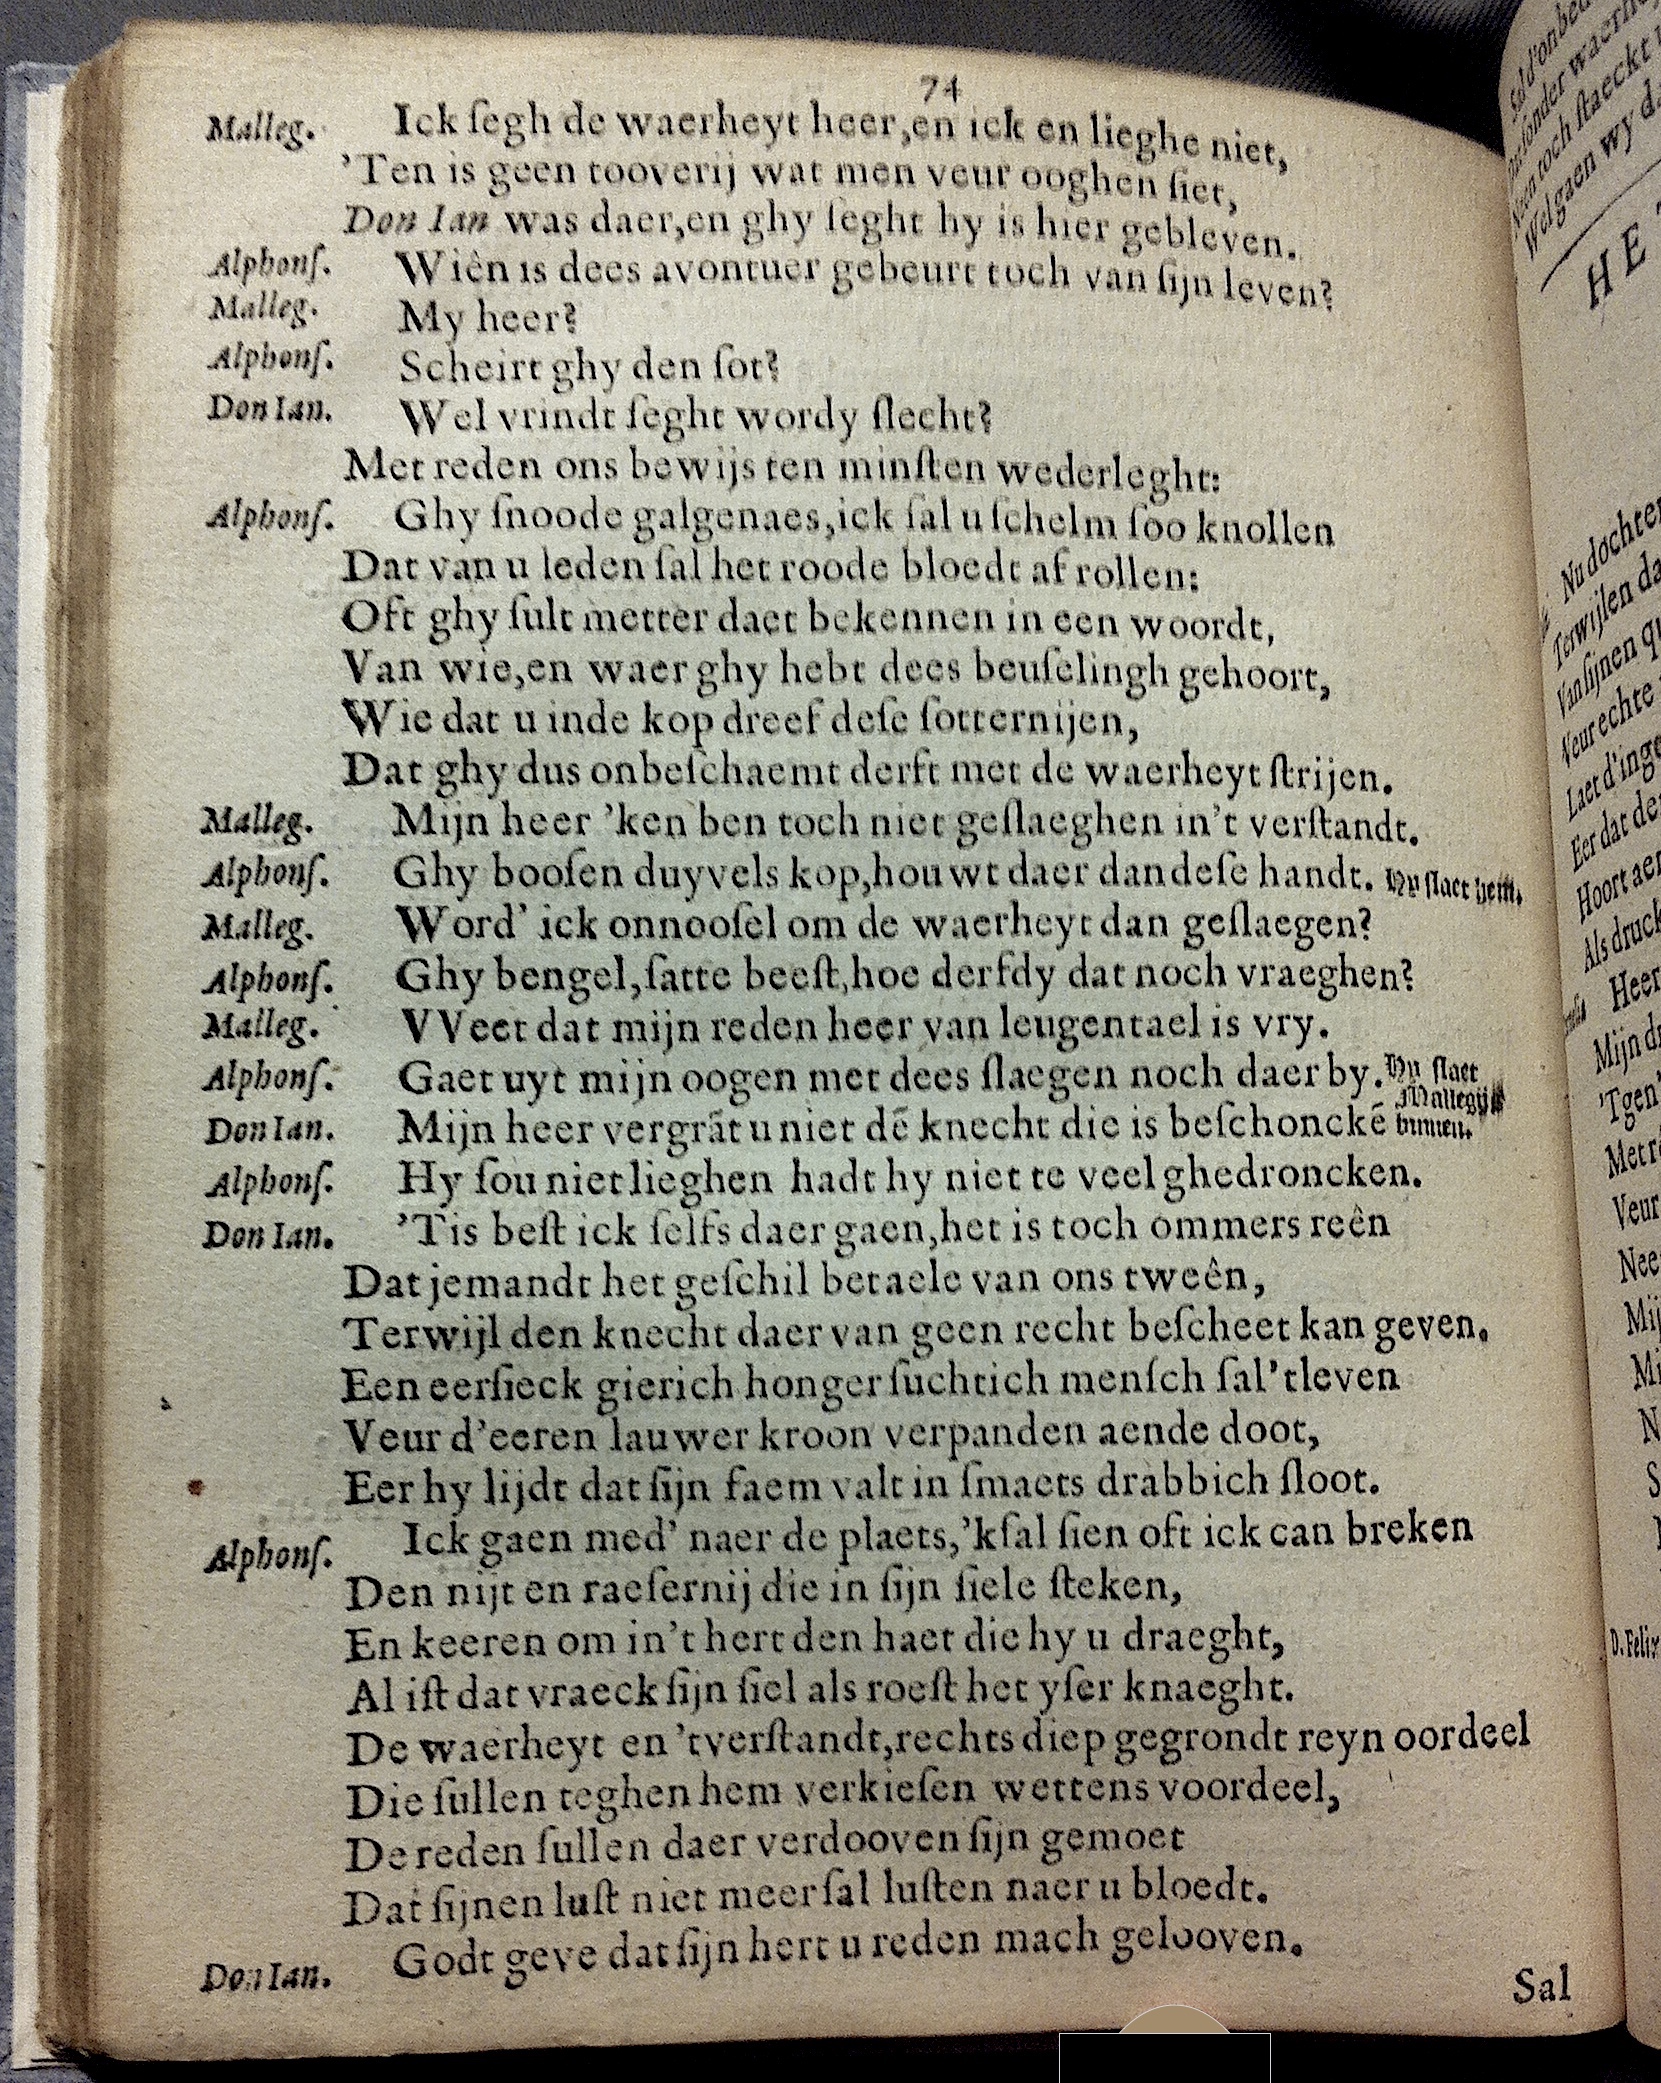 74
Malleg. Ick ſegh de waerheyt heer,en ick en lieghe niet,
’Ten is geen tooverij wat men veur ooghen ſiet,
Don Ian was daer,en ghy ſeght hy is hier gebleven.
Alphonſ. Wiên is dees avontuer gebeurt toch van ſijn leven?
Malleg. My heer?
Alphonſ. Scheirt ghy den ſot?
Don Ian. Wel vrindt ſeght wordy ſlecht?
Met reden ons bewijs ten minſten wederleght:
Alphonſ. Ghy ſnoode galgenaes,ick ſal u ſchelm ſoo knollen
Dat van u leden ſal het roode bloedt af rollen:
Oft ghy ſult metter daet bekennen in een woordt,
Van wie,en waer ghy hebt dees beuſelingh gehoort,
Wie dat u inde kop dreef deſe ſotternijen,
Dat ghy dus onbeſchaemt derft met de waerheyt ſtrijen.
Malleg. Mijn heer ’ken ben toch niet geſlaeghen in’t verſtandt.
Alphonſ. Ghy booſen duyvels kop,houwt daer dan deſe handt. Hy ſlaet hem.
Malleg. Word’ ick onnooſel om de waerheyt dan geſlaegen?
Alphonſ. Ghy bengel,ſatte beeſt,hoe derfdy dat noch vraeghen?
Malleg. VVeet dat mijn reden heer van leugentael is vry.
Alphonſ. Gaet uyt mijn oogen met dees ſlaegen noch daer by. Hy ſlaet
Mallegijs
Don Ian. Mijn heer vergrāt u niet dē knecht die is beſchonckē binnen.
Alphonſ. Hy ſou niet lieghen hadt hy niet te veel ghedroncken.
Don Ian. ’Tis beſt ick ſelfs daer gaen,het is toch ommers reên
Dat jemandt het geſchil betaele van ons tweên,
Terwijl den knecht daer van geen recht beſcheet kan geven.
Een eerſieck gierich hongerſuchtich menſch ſal’tleven
Veur d’eeren lauwer kroon verpanden aende doot,
Eer hy lijdt dat ſijn faem valt in ſmaets drabbich ſloot.
Alphonſ. Ick gaen med’ naer de plaets,’kſal ſien oft ick can breken
Den nijt en raeſernij die in ſijn ſiele ſteken,
En keeren om in’t hert den haet die hy u draeght,
Al iſt dat vraeck ſijn ſiel als roeſt het yſer knaeght.
De waerheyt en ’tverſtandt,rechts diep gegrondt reyn oordeel
Die ſullen teghen hem verkieſen wettens voordeel,
De reden ſullen daer verdooven ſijn gemoet
Dat ſijnen luſt niet meer ſal luſten naer u bloedt.
Don Ian. Godt geve dat ſijn hert u reden mach gelooven.
Sal
HE
Nu dochter
Terwijlen
Van ſijnen
Veur echte
Laet d’inge
Eer dat de
Hoort aer
Als druck
Heer
Mijn
’Tgen
Met
Veur
Nee
Mij
D.Felix